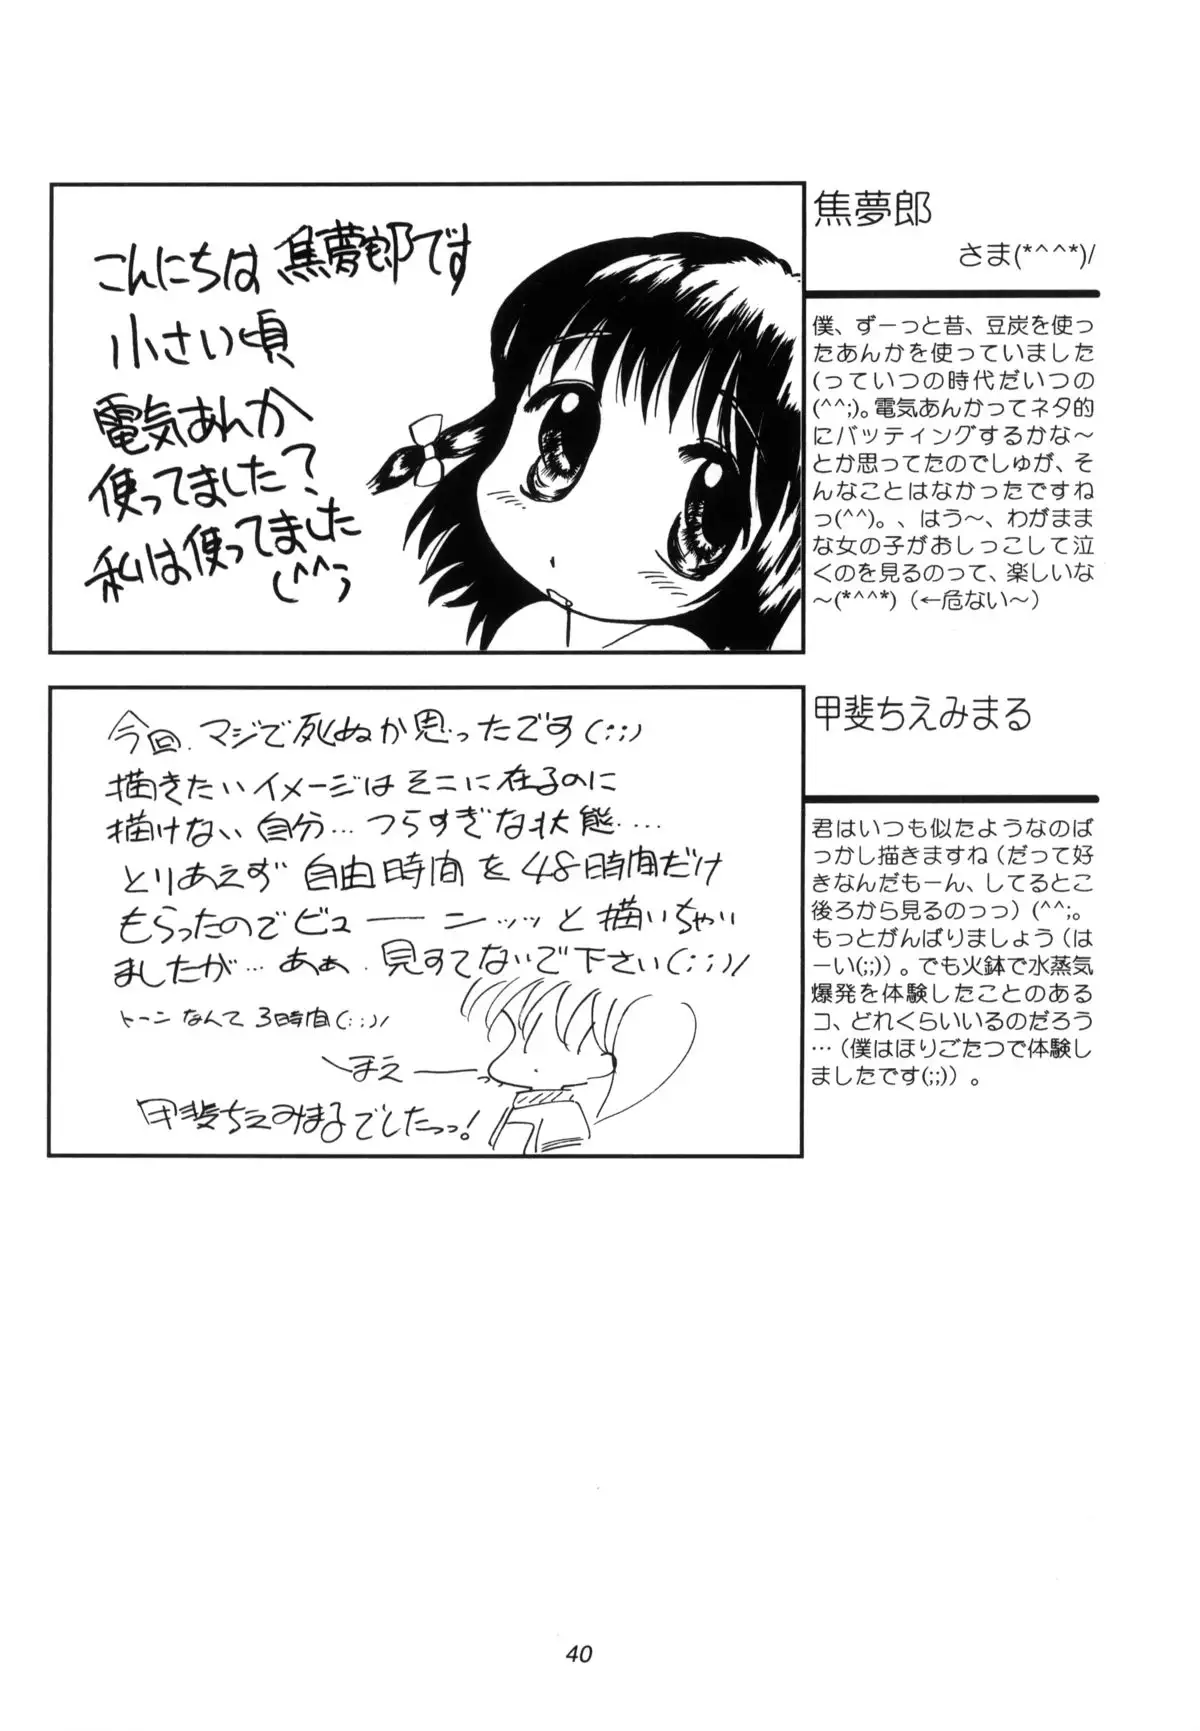 こんにちは 焦夢郎です
小さい頃
電気あんか
使ってました?
私は使ってました
(^^)
焦夢郎
さま(*^^*)/
僕、ずーっと昔、豆炭を使っ
たあんかを使っていました
(っていつの時代だいつの
(^^;)。電気あんかってネタ的
にバッティングするかな〜
とか思ってたのでしゅが、そ
んなことはなかったですね
っ(^^)。、はう〜、わがまま
な女の子がおしっこして泣
くのを見るのって、楽しいな
〜(*^^*)（←危ない〜）
今回、マジで死ぬか思ったです(;;)
描きたいイメージはそこに在るのに
描けない自分…つらすぎな状態‥‥
とりあえず 自由時間を48時間だけ
もらったのでビューーンッッと描いちゃい
ましたが… あぁ、見すてないで下さい(;;)/
トーンなんて 3時間(;;)/
まえ
甲斐ちえみまるでしたっっ!
甲斐ちえみまる
君はいつも似たようなのば
っかし描きますね（だって好
きなんだもーん、してるとこ
後ろから見るのっっ）(^^;。
もっとがんばりましょう（は
ーい(;;)）。でも火鉢で水蒸気
爆発を体験したことのある
コ、どれくらいいるのだろう
…（僕はほりごたつで体験し
ましたです(;;)）。
40